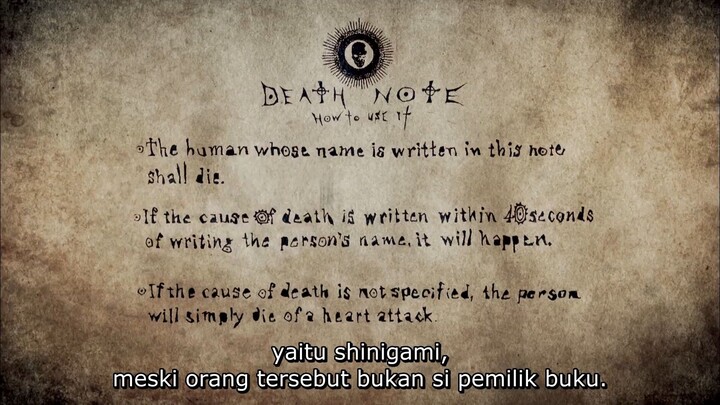 DEATH NOTE
How to use it
The human whose name is written in this note
shall die.
If the cause of death is written within 40 seconds
of writing the person's name, it will happen.
If the cause of death is not specified, the person
will simply die of a heart attack.
yaitu shinigami,
meski orang tersebut bukan si pemilik buku.